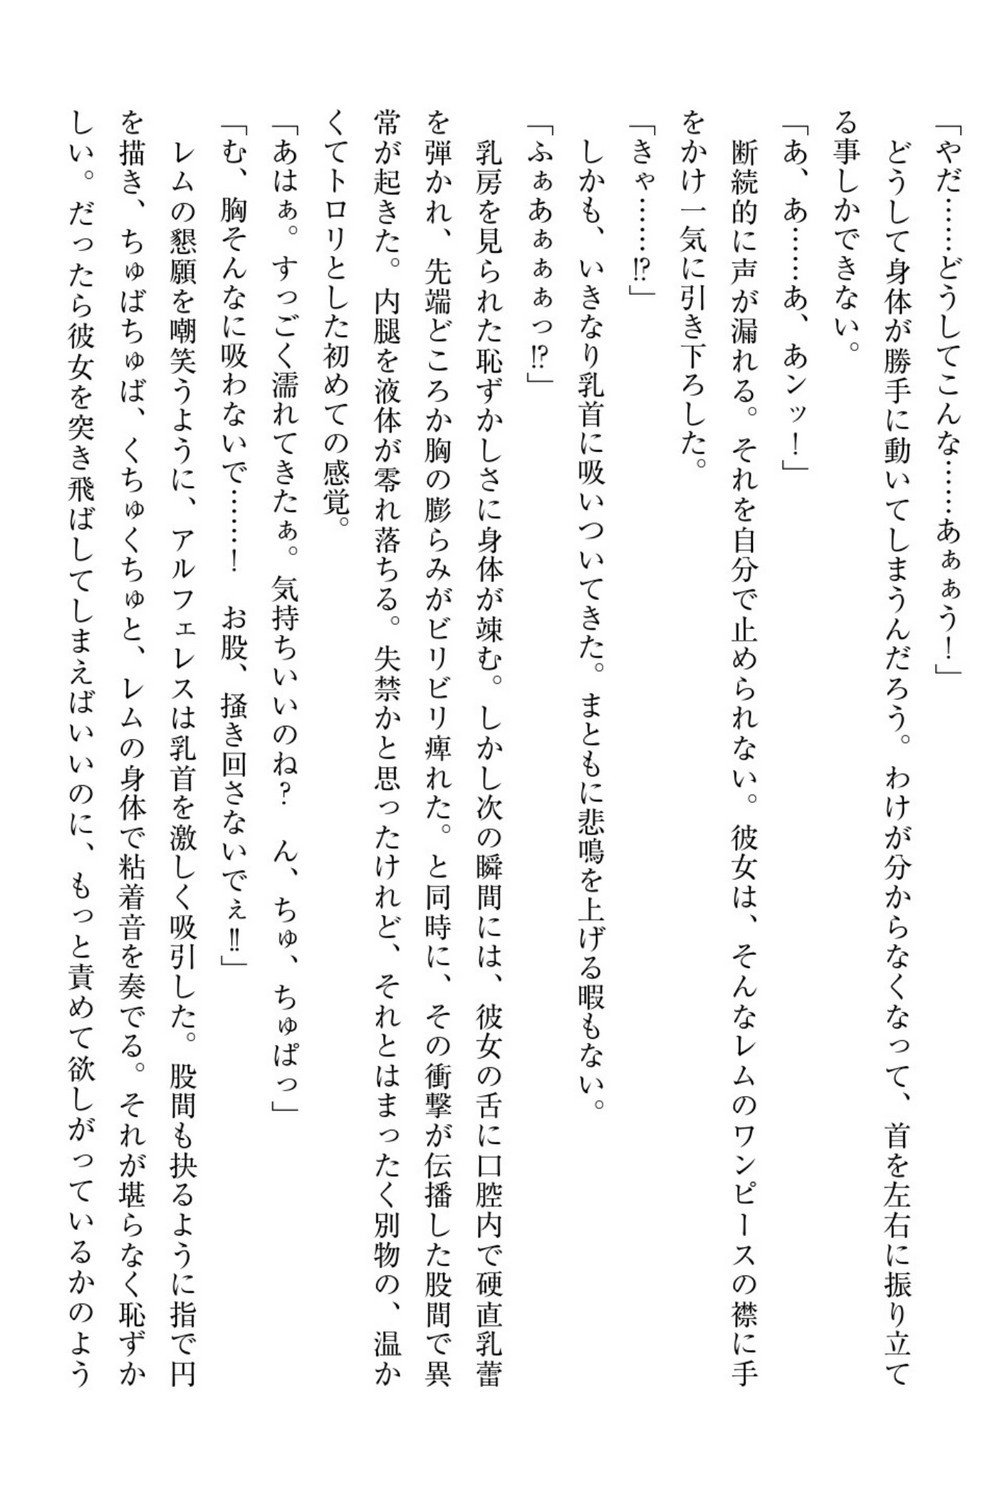 「やだ……どうしてこんな……あぁぁう！」
　どうして身体が勝手に動いてしまうんだろう。わけが分からなくなって、首を左右に振り立て
る事しかできない。
「あ、あ……あ、あンッ！」
　断続的に声が漏れる。それを自分で止められない。彼女は、そんなレムのワンピースの襟に手
をかけ一気に引き下ろした。
「きゃ……⁉」
　しかも、いきなり乳首に吸いついてきた。まともに悲鳴を上げる暇もない。
「ふぁあぁぁぁっ⁉」
　乳房を見られた恥ずかしさに身体が竦む。しかし次の瞬間には、彼女の舌に口腔内で硬直乳蕾
を弾かれ、先端どころか胸の膨らみがビリビリ痺れた。と同時に、その衝撃が伝播した股間で異
常が起きた。内腿を液体が零れ落ちる。失禁かと思ったけれど、それとはまったく別物の、温か
くてトロリとした初めての感覚。
「あはぁ。すっごく濡れてきたぁ。気持ちいいのね？　ん、ちゅ、ちゅぱっ」
「む、胸そんなに吸わないで……！　お股、掻き回さないでぇ‼」
　レムの懇願を嘲笑うように、アルフェレスは乳首を激しく吸引した。股間も抉るように指で円
を描き、ちゅばちゅば、くちゅくちゅと、レムの身体で粘着音を奏でる。それが堪らなく恥ずか
しい。だったら彼女を突き飛ばしてしまえばいいのに、もっと責めて欲しがっているかのよう